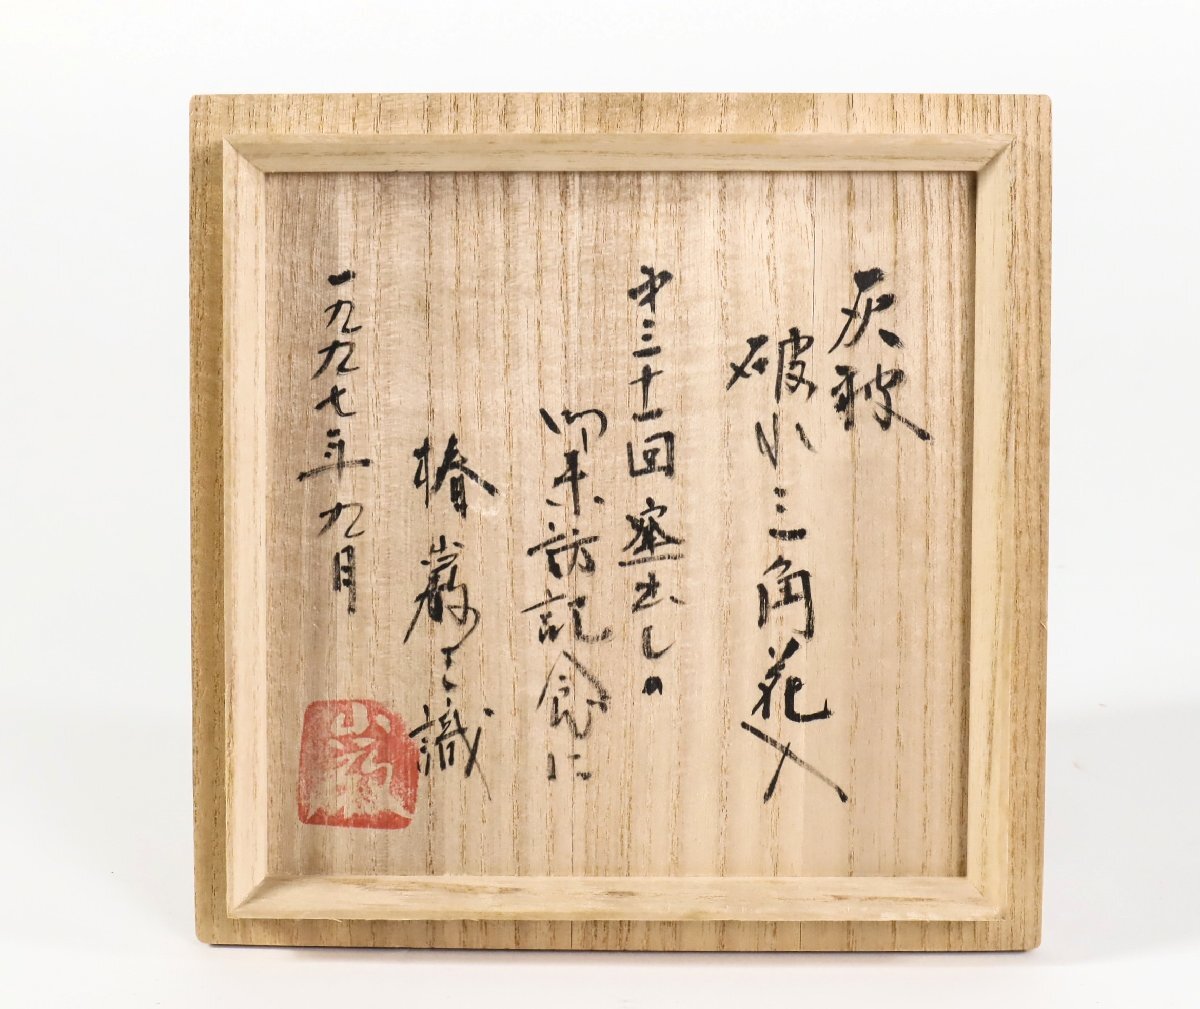 灰被
破れ三角花入
才三十一回窯出しの
御来訪記念に
椿巌三識
一九九七年九月